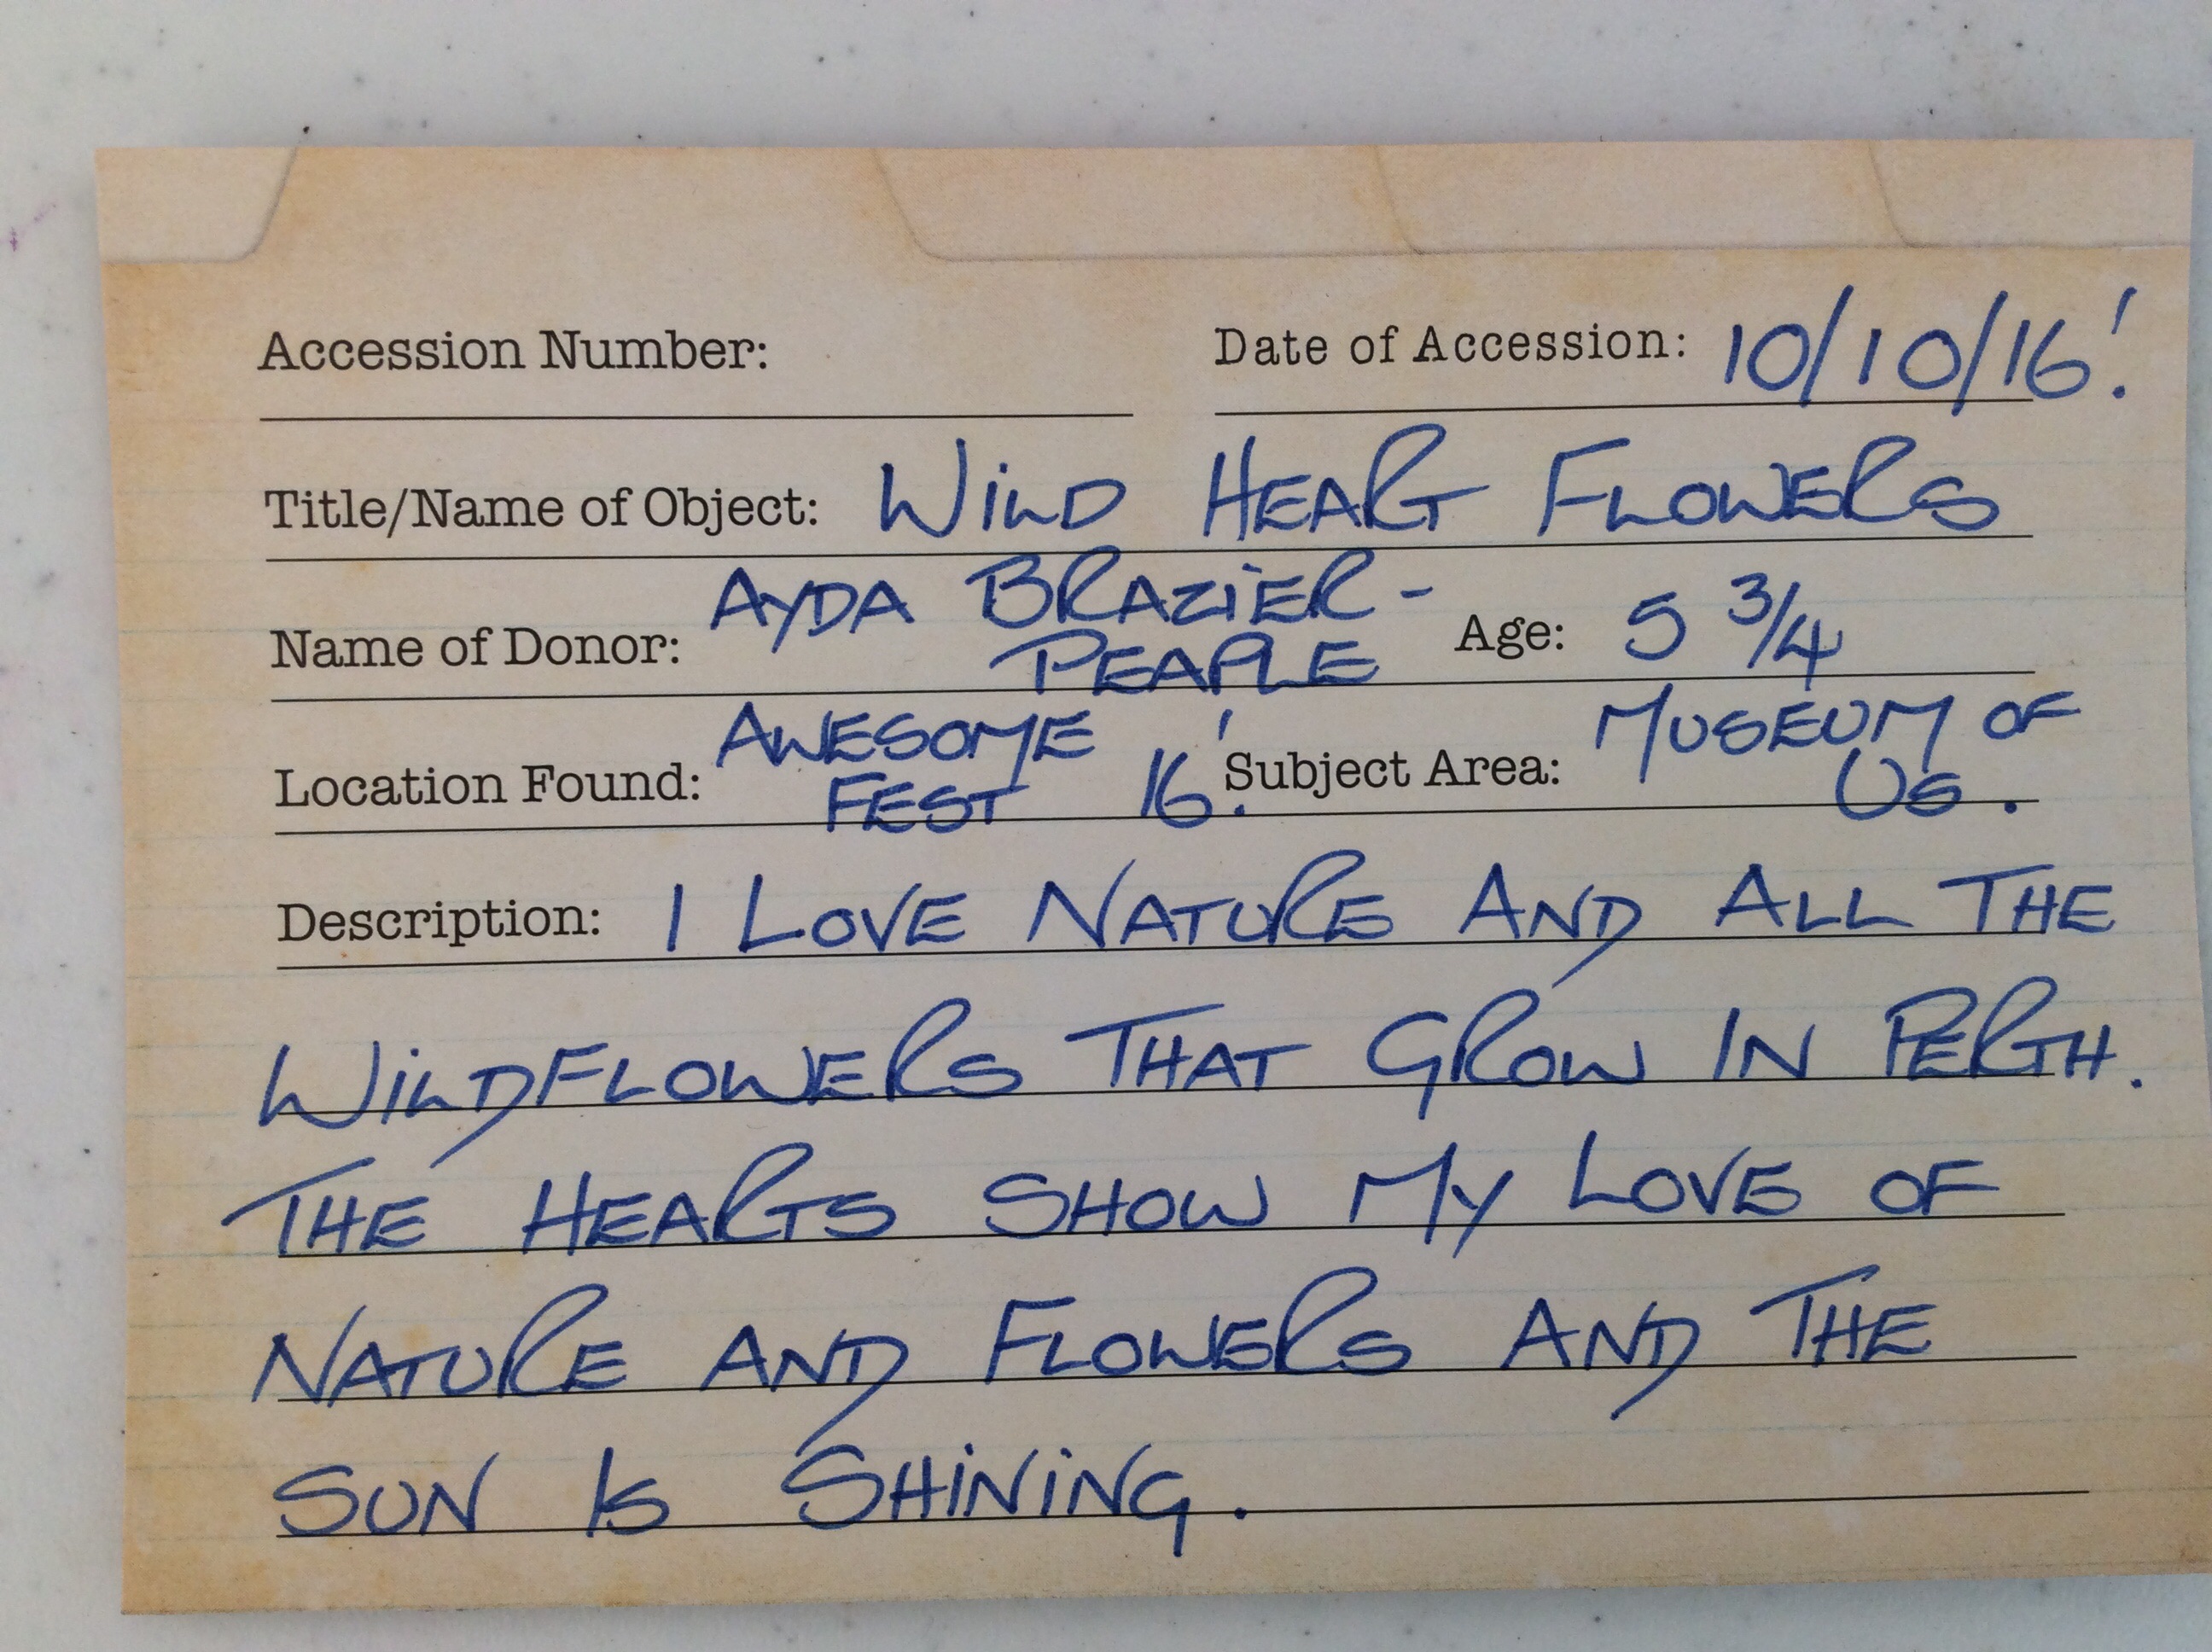 Accession Number: Date of Accession: 10/10/16!
Title/Name of Object: WILD HEART FLOWERS
Name of Donor: AYDA BRAZIER-
PEAPLE Age: 5 3/4
Location Found: AWESOME
FEST 16! Subject Area: MUSEUM OF
US.
Description: I LOVE NATURE AND ALL THE
WILDFLOWERS THAT GROW IN PERTH.
THE HEARTS SHOW MY LOVE OF
NATURE AND FLOWERS AND THE
SUN IS SHINING.